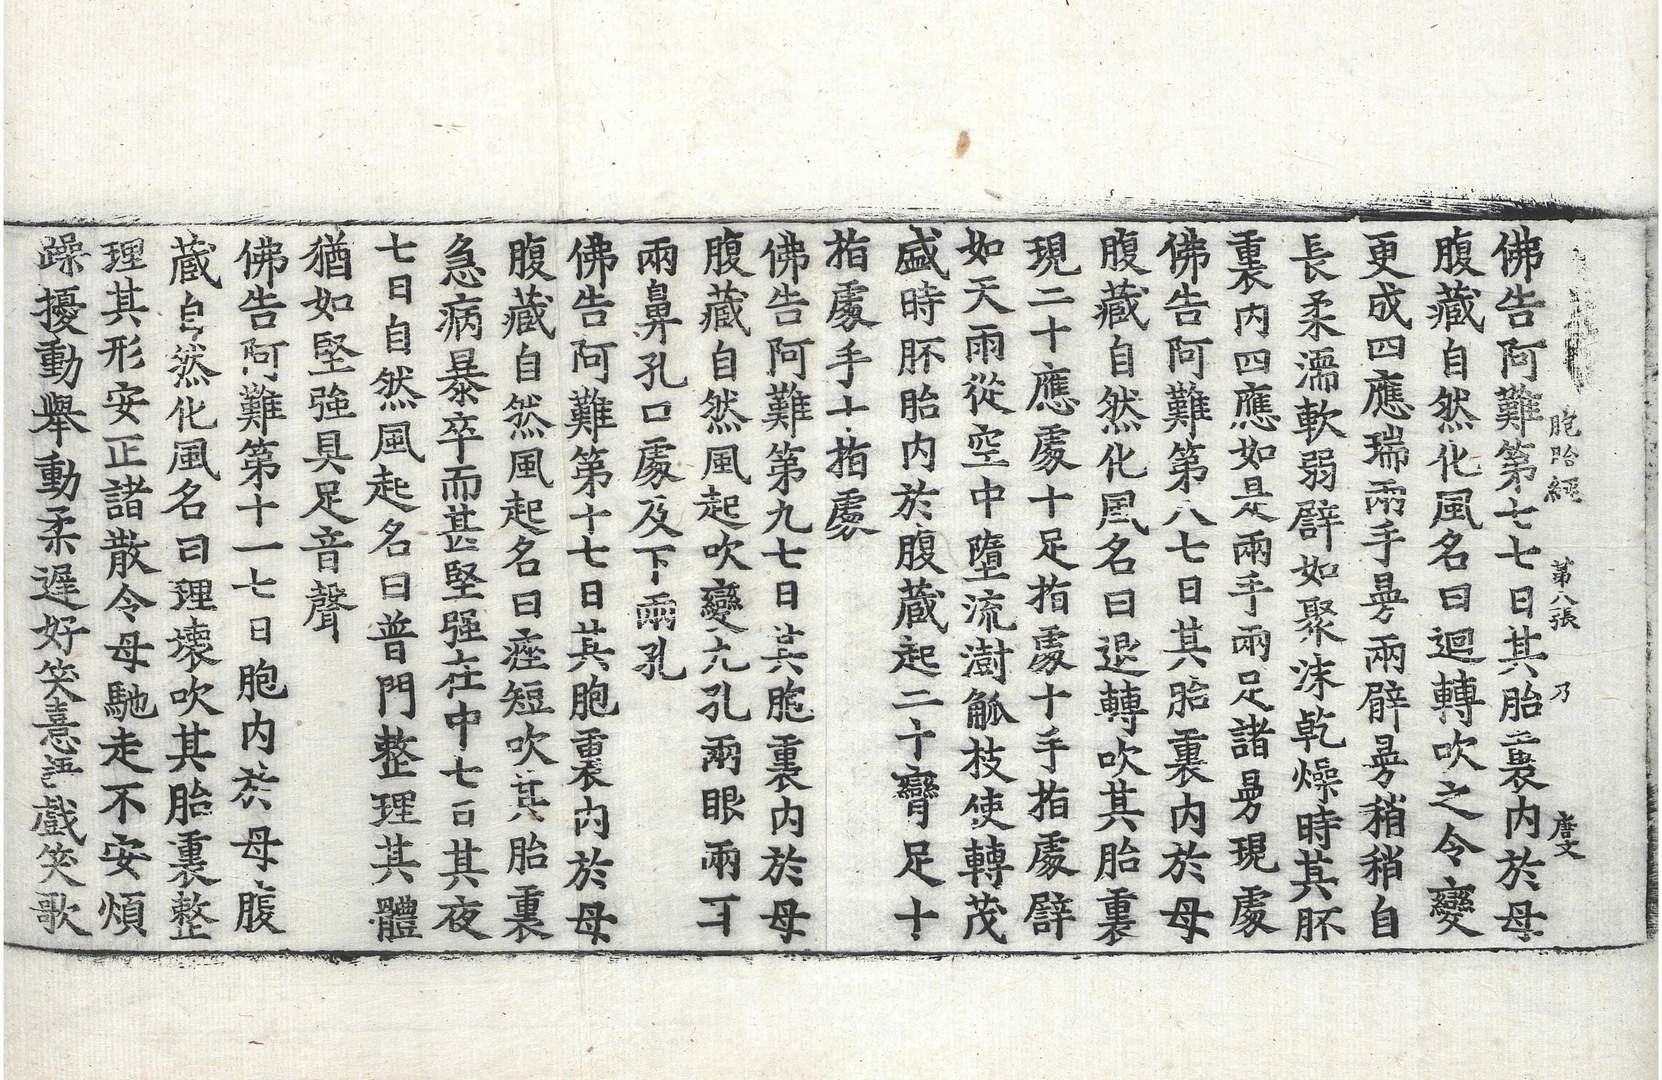 胞胎經 第八張 乃 唐文
佛告阿難第七七日其胎裏内於母
腹藏自然化風名曰迴轉吹之令變
更成四應瑞兩手曼兩臂曼稍稍自
長柔濡軟弱譬如聚沫乾燥時其胚
裏内四應如是兩手兩足諸曼現處
佛告阿難第八七日其胎裏内於母
腹藏自然化風名曰退轉吹其胎裏
現二十應處十足指處十手指處譬
如天雨從空中墮流澍觚枝使轉茂
盛時胚胎内於腹藏起二十臠足十
指處手十指處
佛告阿難第九七日其胞裏内於母
腹藏自然風起吹變九孔兩眼兩耳
兩鼻孔口處及下兩孔
佛告阿難第十七日其胞裏内於母
腹藏自然風起名曰痤短吹其胎裏
急病暴卒而甚堅强在中七日其夜
七日自然風起名曰普門整理其體
猶如堅強具足音聲
佛告阿難第十一七日胞内於母腹
藏自然化風名曰理壞吹其胎裏整
理其形安正諸散令母馳走不安煩
躁擾動舉動柔遲好笑憙語戲笑歌